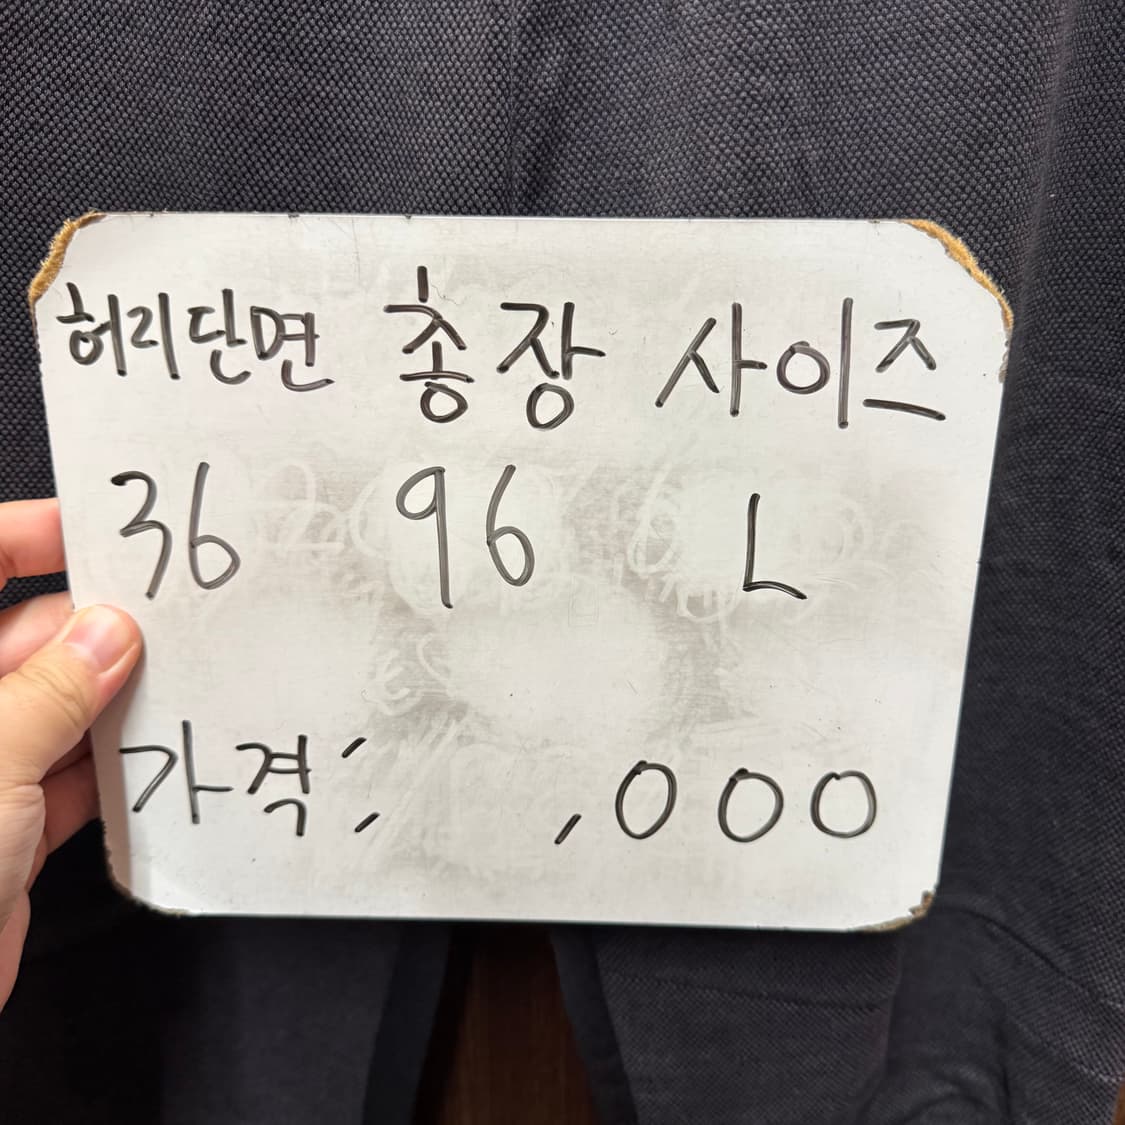 허리단면 총장 사이즈
36 96 L
가격: ,000